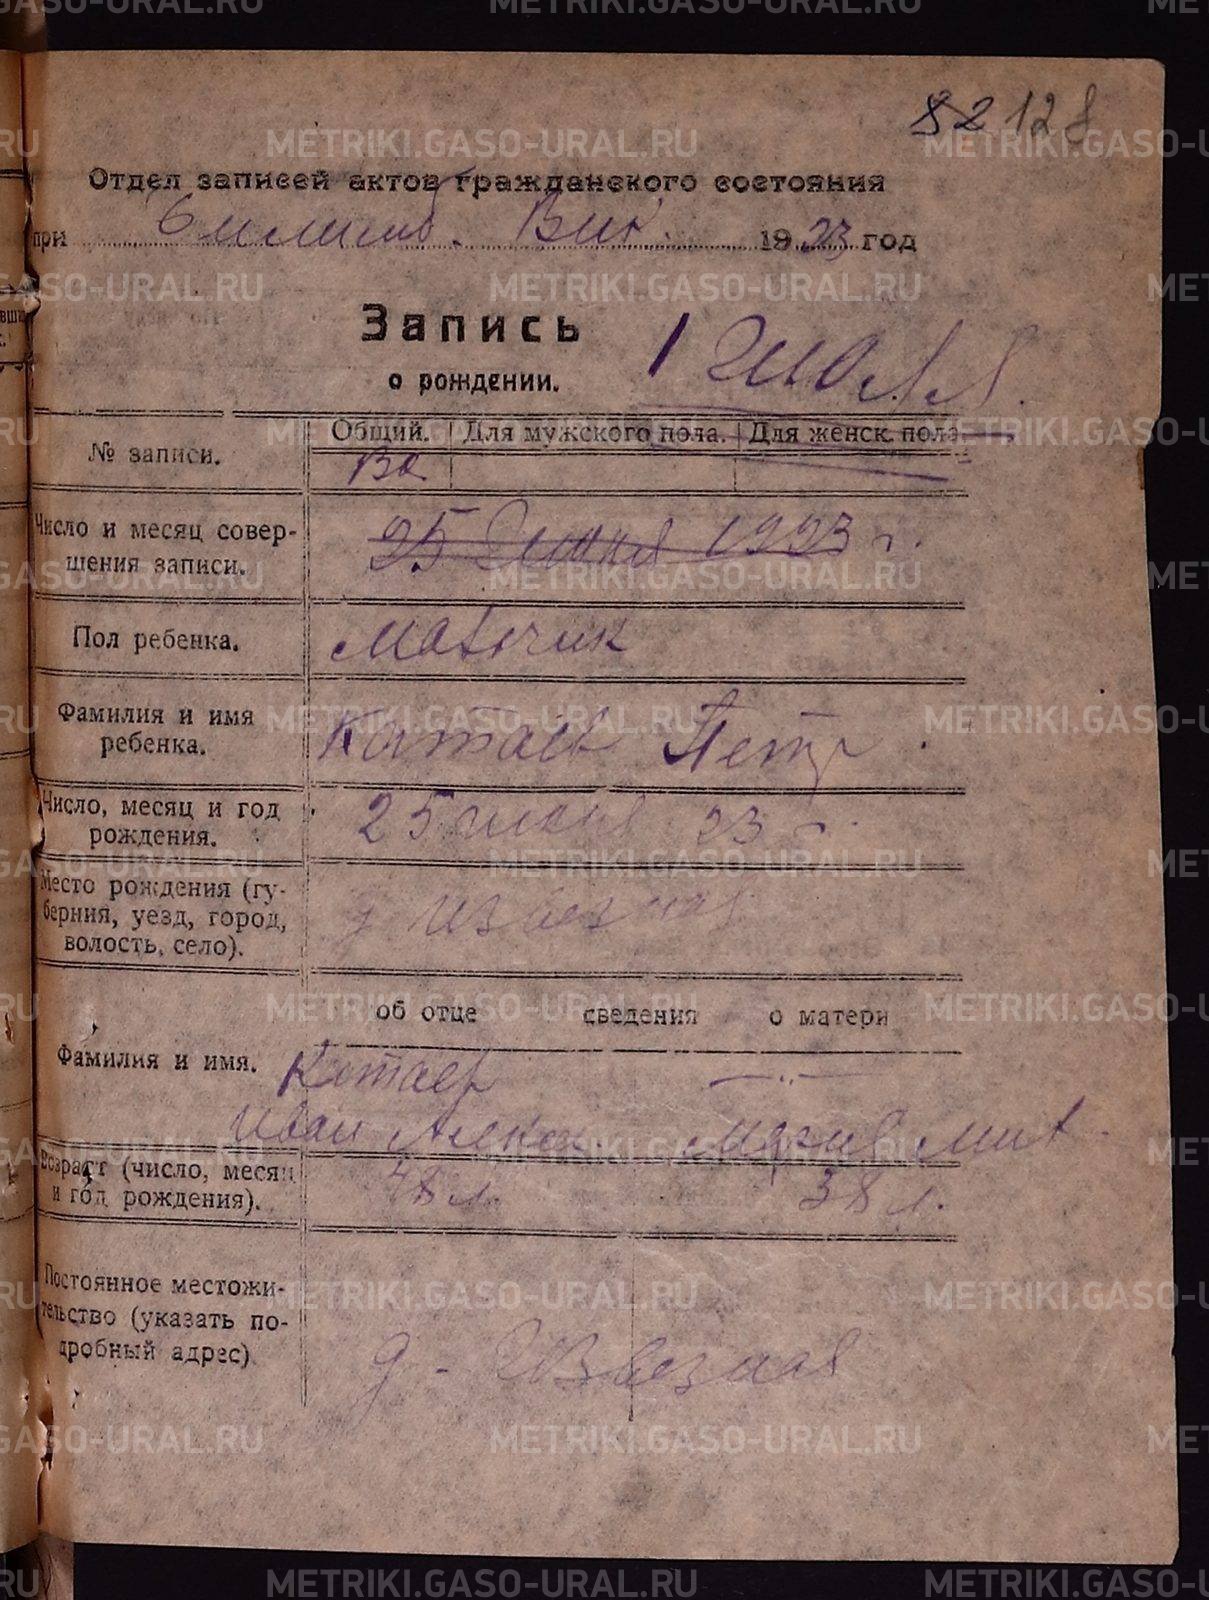 82 128
Отдел записей актов гражданского состояния
при Вик. 1923 год
Запись
о рождении.
1 июля
№ записи.
Общий. Для мужского пола. Для женск. пола
Число и месяц совер-
шения записи.
25 июня 1923 г.
Пол ребенка.
Мальчик
Фамилия и имя
ребенка.
Катаев Петр
Число, месяц и год
рождения.
25 июня 23 г.
Место рождения (гу-
берния, уезд, город,
волость, село).
д
об отце сведения о матери
Фамилия и имя.
Катаев — " —
Иван Алекс Мария Мих
Возраст (число, месяц
и год рождения).
48 л. 38 л.
Постоянное местожи-
тельство (указать по-
дробный адрес)
д -
METRIKI.GASO-URAL.RU